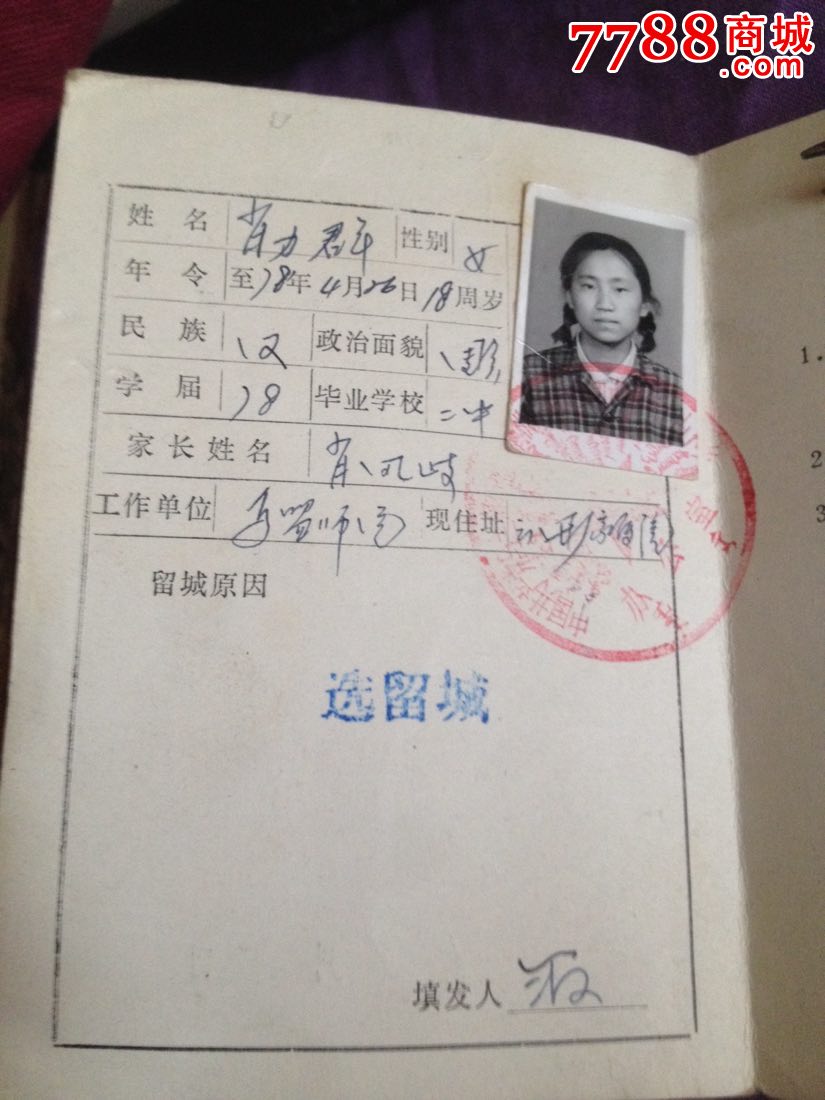 7788商城
.com
姓名 肖力群 性别 女
年令 至78年4月26日18周岁
民族 汉 政治面貌
学届 78 毕业学校 二中
家长姓名 肖凤岐
工作单位 现住址
留城原因
选留城
填发人
1.
2
3